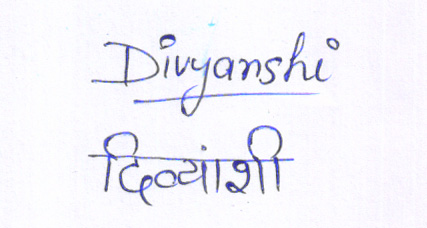 Divyanshi
दिव्यांशी